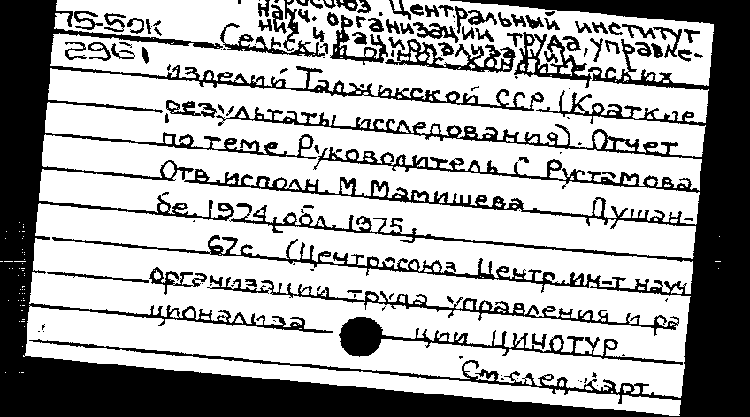 Центросоюз. Центральный институт
75-50к науч. организации труда, управле-
2961 ния и рационализации.
Сельский рынок кондитерских
изделий Таджикской ССР. (Краткие
результаты исследования). Отчет
по теме. Руководитель С Рустамова.
Отв. исполн. М. Мамишева. Душан-
бе, 1974, обл. 1975,.
67с. (Центросоюз. Центр. ин-т науч
организации труда, управления и ра
ционализа ции ЦИНОТУР
См. след. карт.